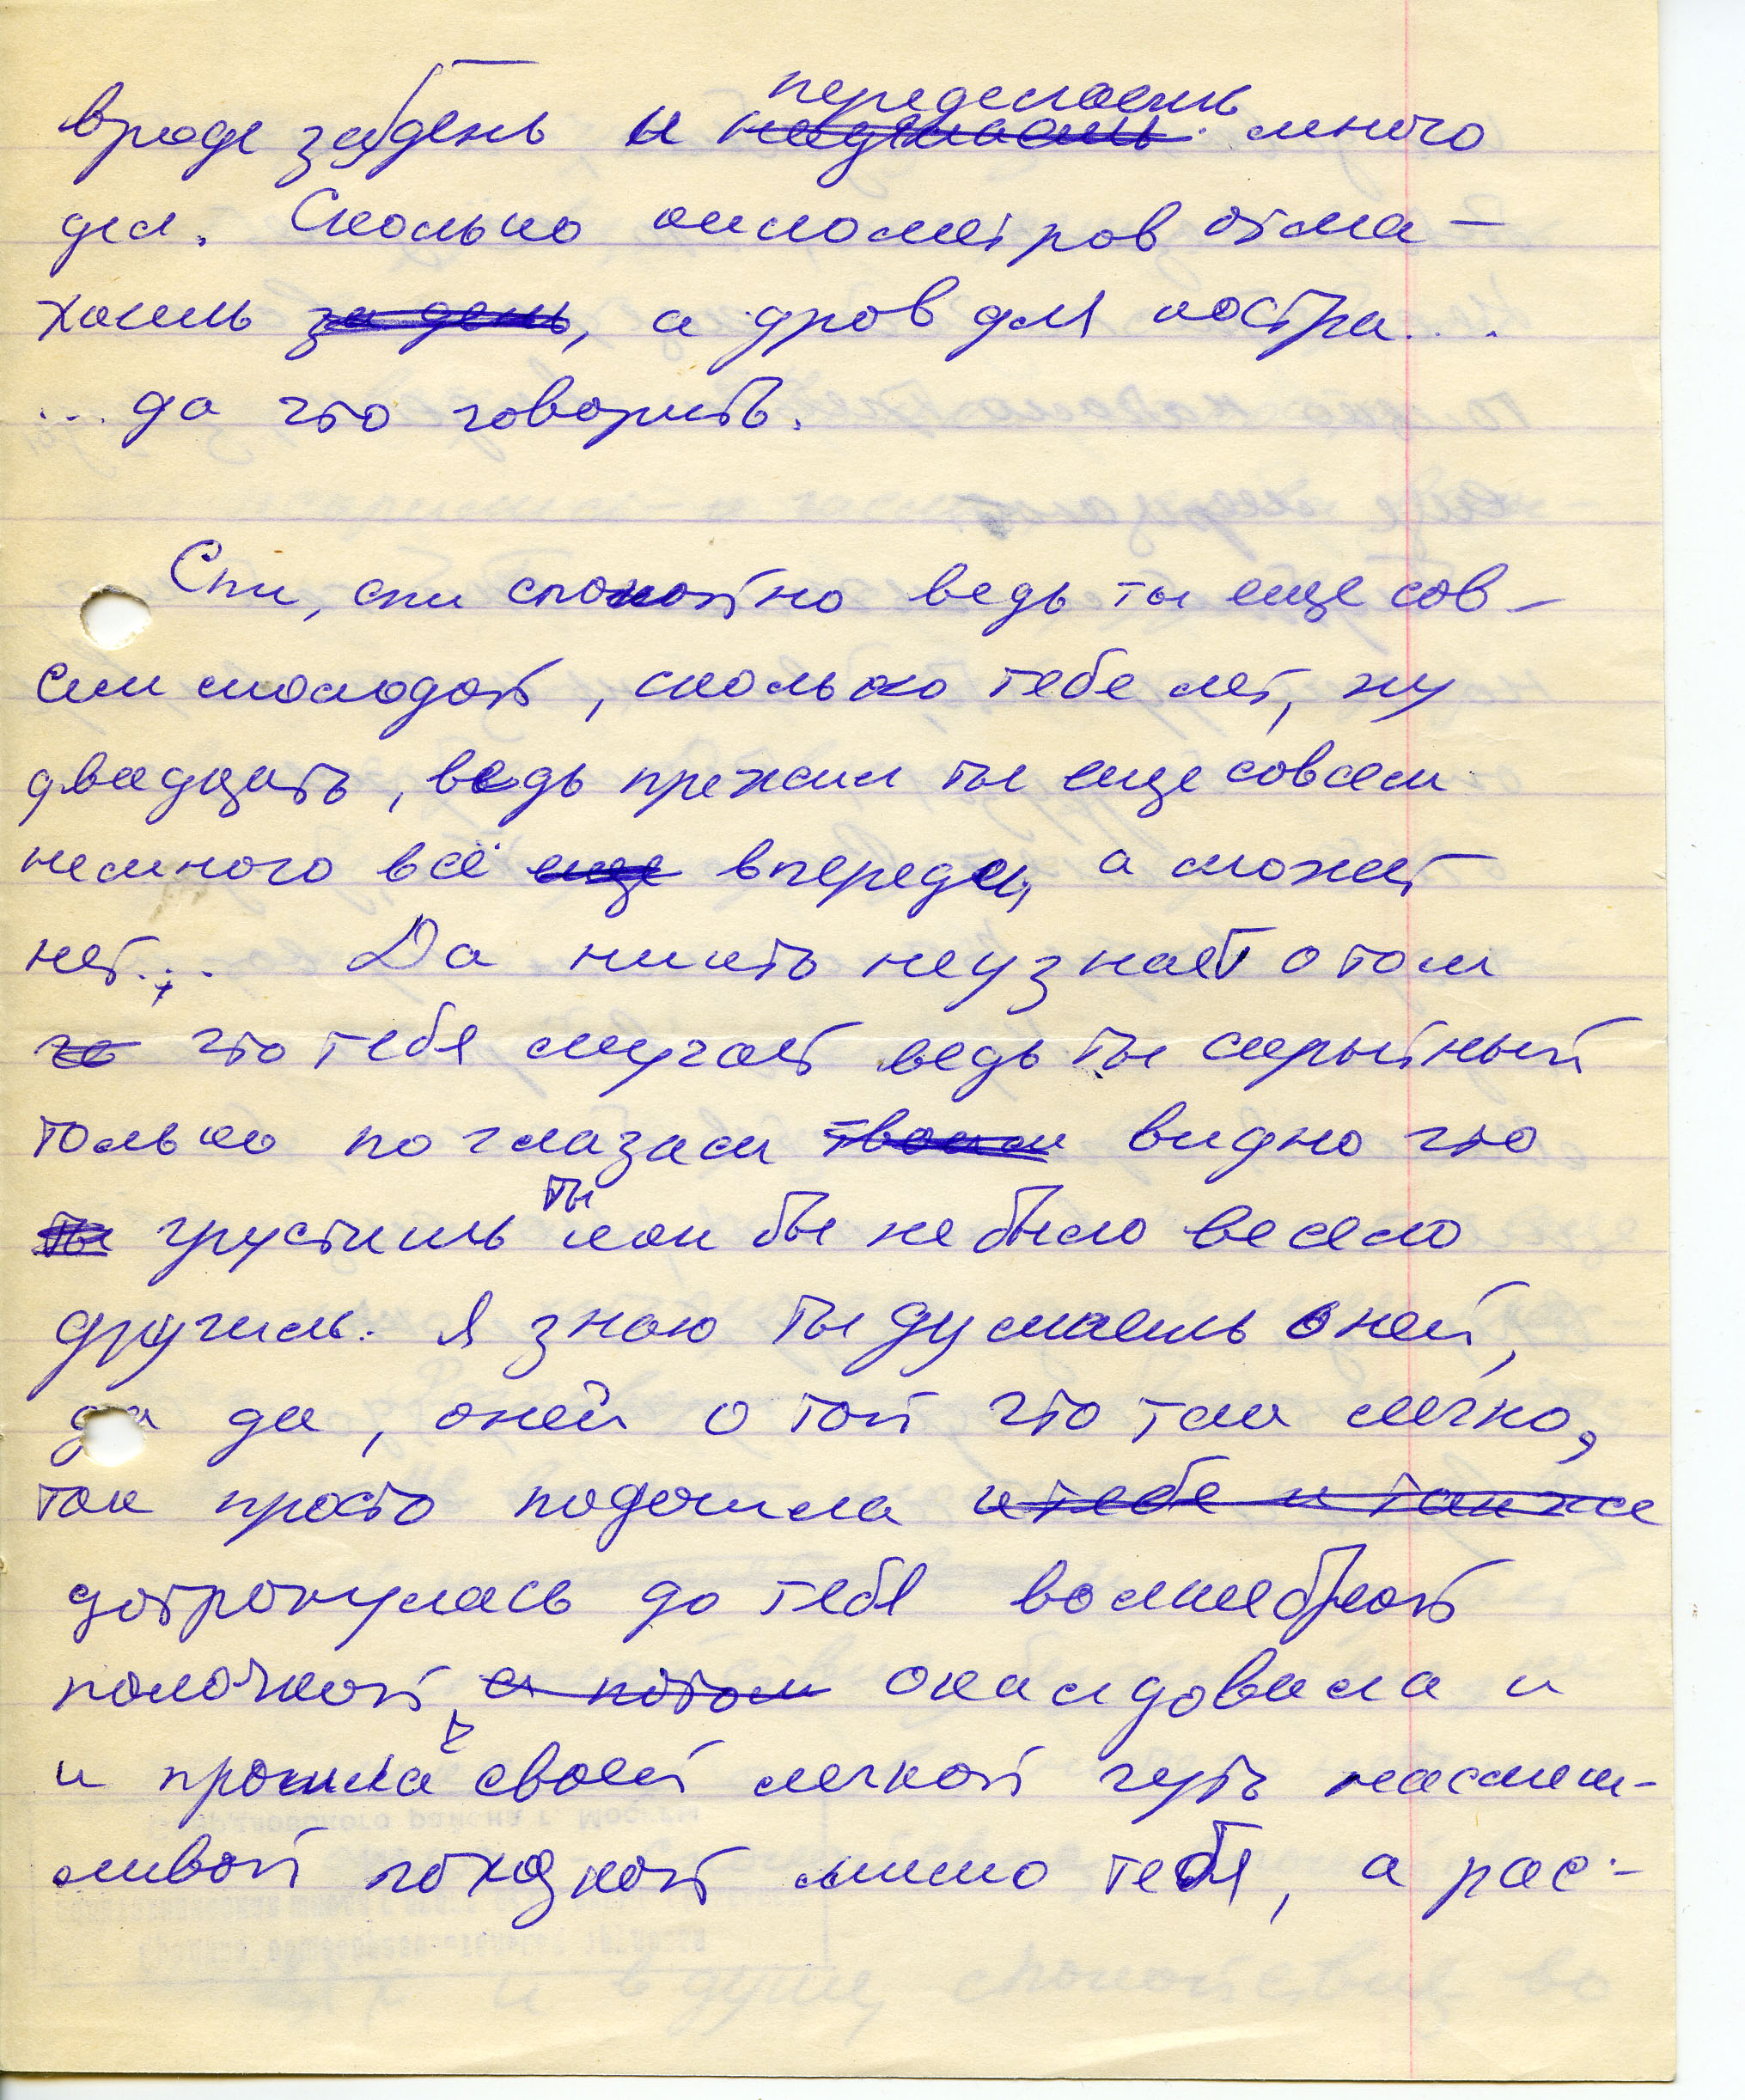 переделаешь
вроде за день и много
дел. Сколько километров отма-
хаешь за день, а дров для костра....
... да что говорить.
Спи, спи спокойно ведь ты еще сов-
сем молодой, сколько тебе лет, ну
двадцать, ведь прежил ты еще совсем
немного всё еще впереди, а может
нет... Да никто неузнает о том
что тебя мучает ведь ты скрытный
только по глазам твоим видно что
ты
ты грустишь как бы не было весело
другим. Я знаю ты думаешь о ней,
да да, оней о той что так легко,
так просто подошла к тебе и так же
дотронулась до тебя волшебной
палочкой, а потом околдовала и
и прошла своей легкой чуть насмеш-
ливой походкой мимо тебя, а рас-